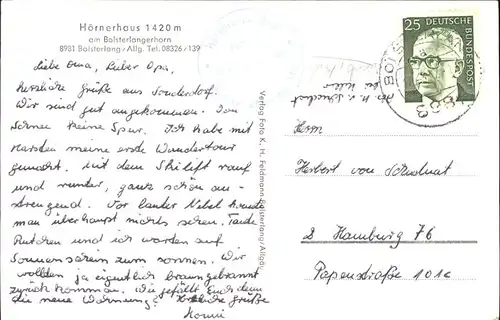 Hörnerhaus 1420 m
am Bolsterlangerhorn
8981 Bolsterlang/Allg. Tel. 08326/139
Liebe Oma, lieber Opa,
herzliche Grüße aus Sonderdorf.
Wir sind gut angekommen. Von
Schnee keine Spur. Ich habe mit
Karsten meine erste Wandertour
gemacht. Mit dem Skilift rauf
und runter, ganz schön an-
strengend. Vor lauter Nebel konnte
man überhaupt nichts sehen. Tante
und ich warten auf
Sonnenschein zum sonnen. Wir
wollten ja eigentlich braungebrannt
zurück kommen. Wie gefällt Euch denn
die neue Wohnung? Herzliche Grüße
Verlag Foto K. H. Feldmann Bolsterlang/Allgäu
25 DEUTSCHE BUNDESPOST
Herrn
Herbert von
2 Hamburg 76
Papenstraße 101c